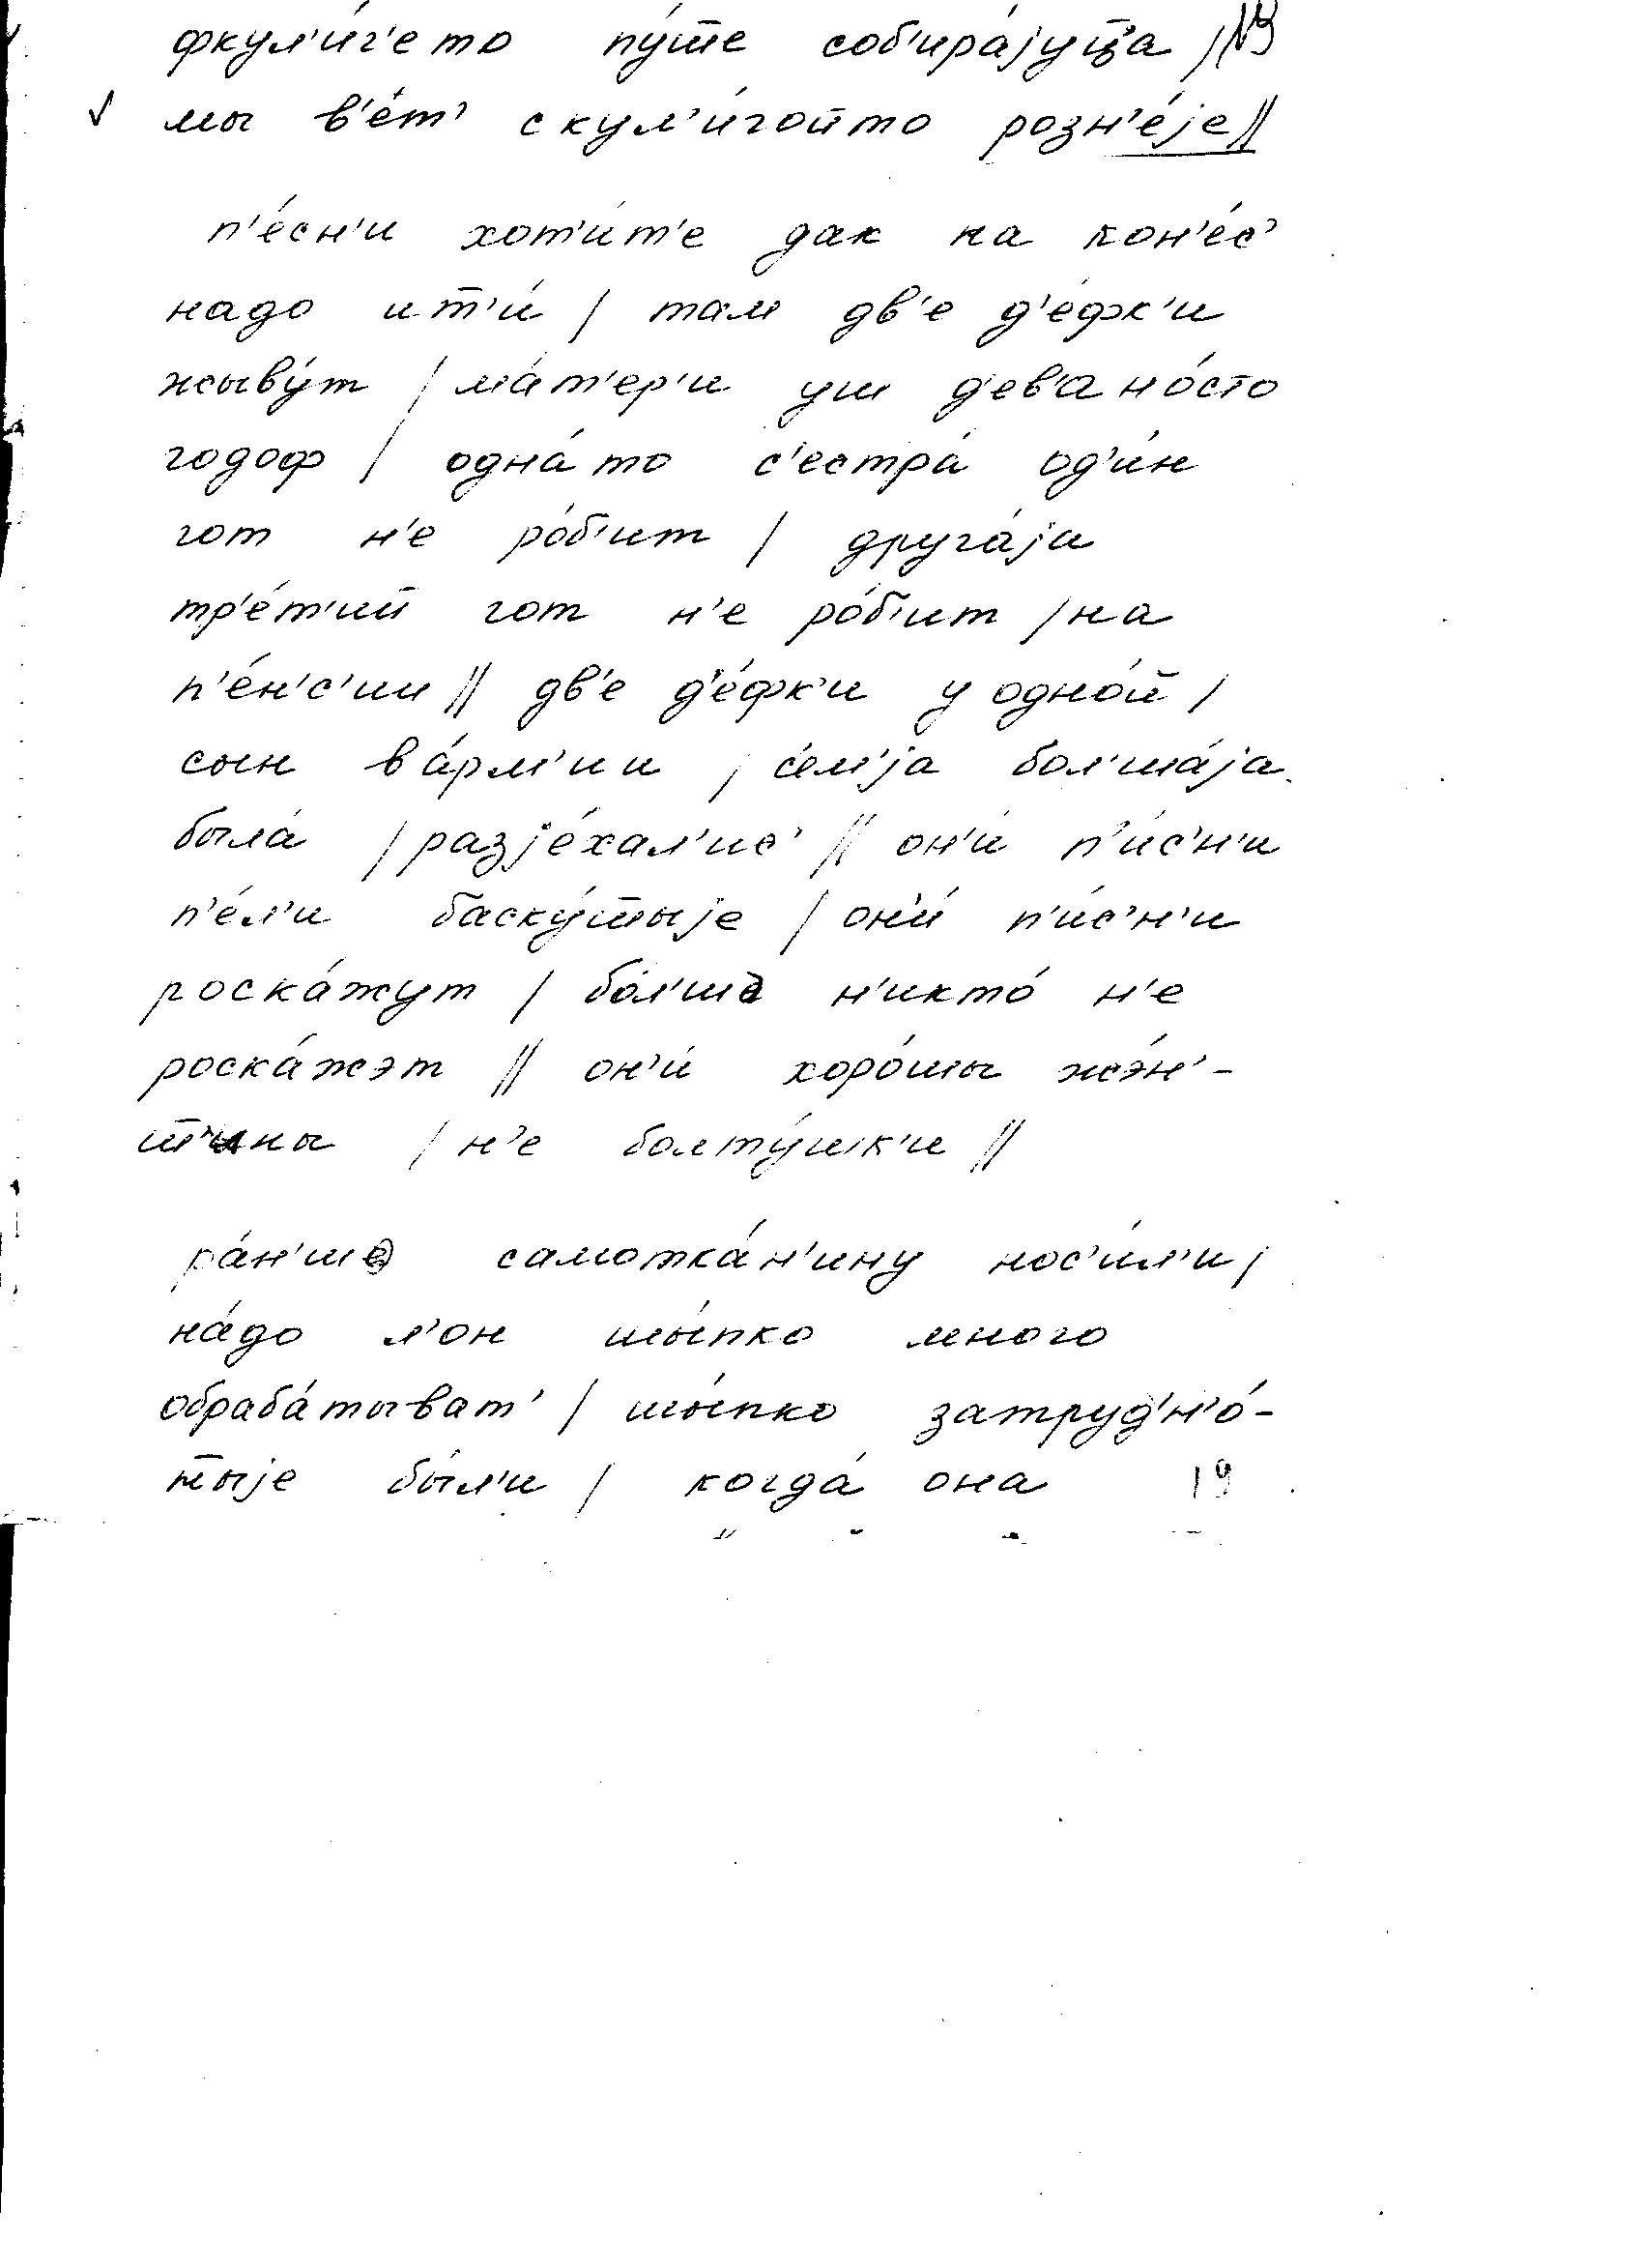 фкул'и́г'ето пу́ш̄е соб'ира́јуц̄а /
✓ мы в'е́т' скул'и́гойто розн'е́је //
п'е́сн'и хот'и́т'е дак на кон'е́с'
надо ит̄'и́ / там дв'е д'е́фк'и
жыву́т / ма́т'ер'и уш д'ев'ано́сто
годоф / одна́то с'естра́ од'и́н
гот н'е ро́б'ит / друга́ја
тр'е́т'ий гот н'е ро́б'ит / на
п'е́н'с'ии // дв'е д'е́фк'и у одно́й /
сын ва́рм'ии / с'ем'ја бол'ша́ја
была́ / разје́хал'ис' // он'и́ п'и́с'н'и
п'е́л'и баску́ш̄ыје / он'и́ п'и́с'н'и
роска́жут / бо́л'ше н'икто́ н'е
роска́жэт // он'и́ хоро́шы жэ́н'-
ш̄'ины / н'е болту́шк'и //
ра́н'ше самотка́н'ину нос'и́л'и /
на́до л'он шы́пко много
обраба́тыват' / шы́пко затруд'н'о́-
ш̄ыје бы́л'и / когда́ она 19